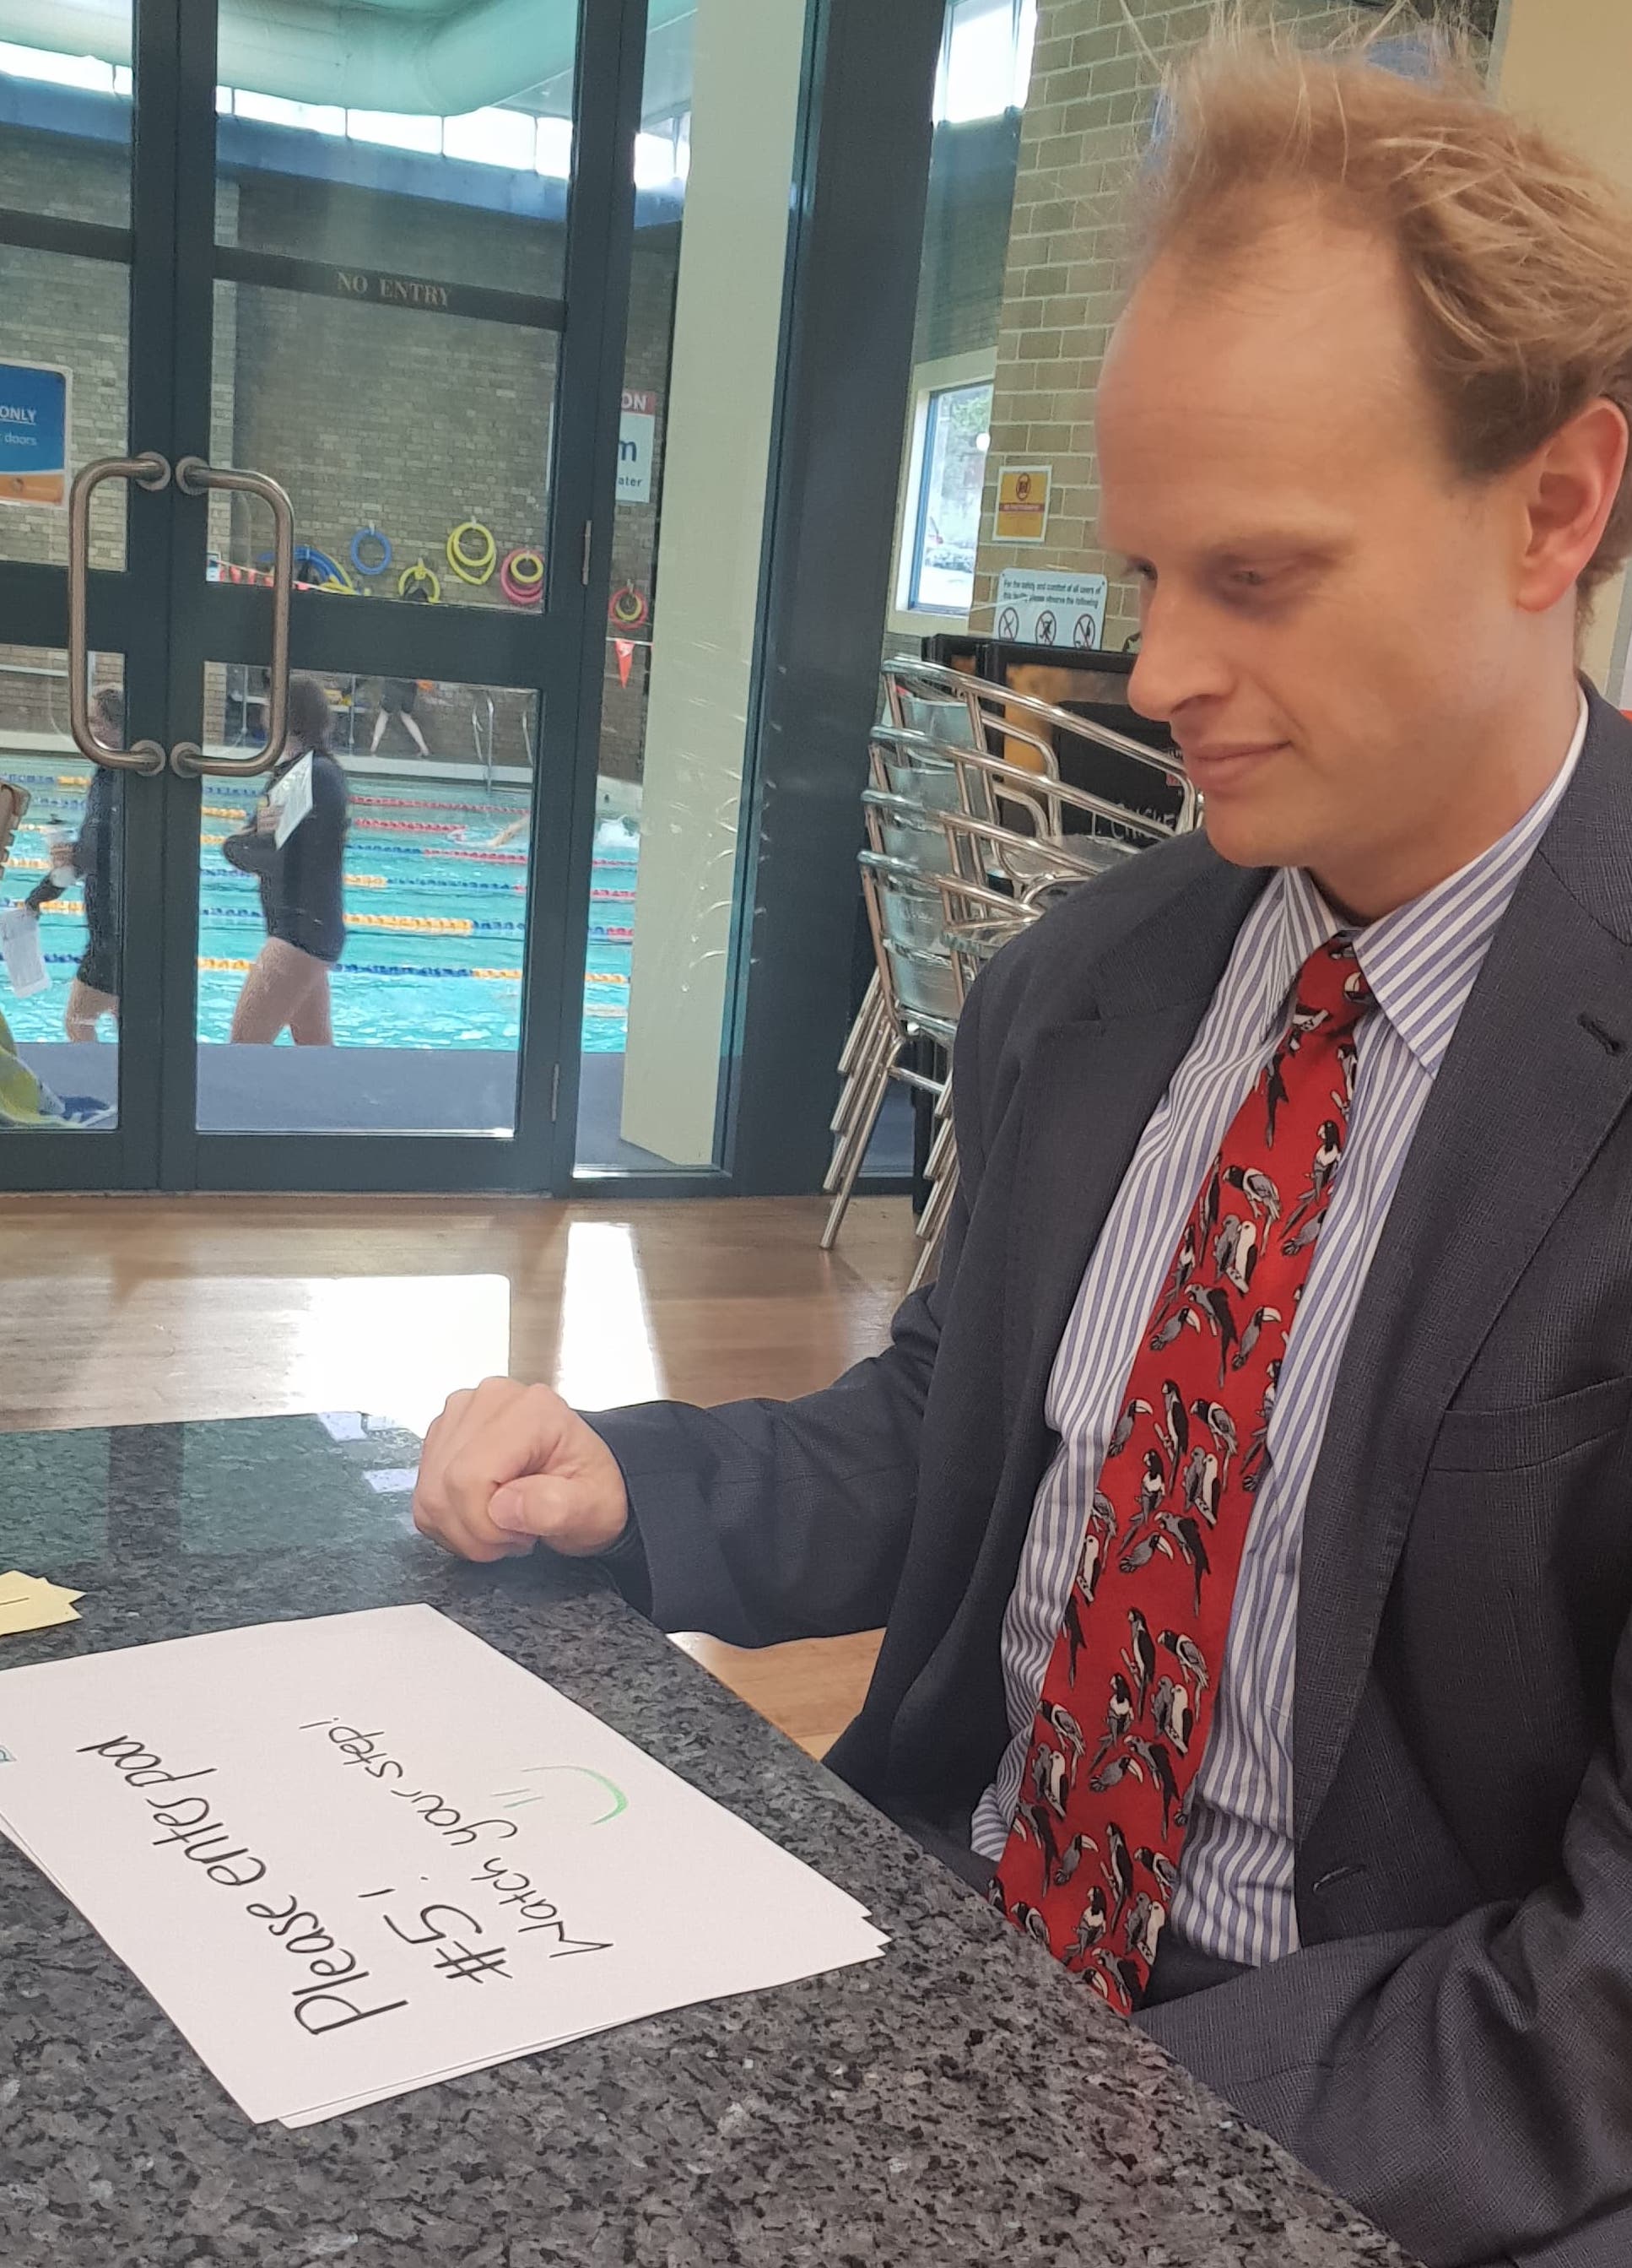 NO ENTRY
ONLY
doors
ON
m
ater
For the safety and comfort of all users of
this facility please observe the following
Please enter pool
#5!
Watch your step!
=)